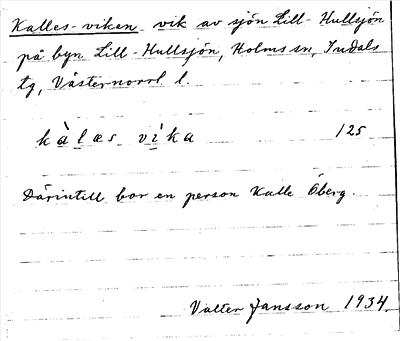 Kalles-viken vik av sjön Lill-Hullsjön
på byn Lill-Hullsjön, Holms sn, Indals
tg, Västernorrl. l.
kàlæs vìka 125
Därintill bor en person Kalle Öberg.
Valter Jansson 1934.